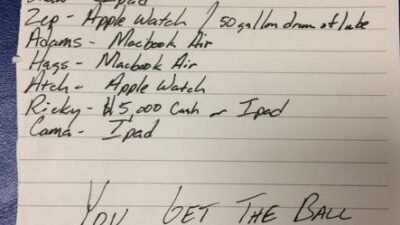 Ipad
Zep - Apple Watch / 50 gallon drum of lube
Adams - Macbook Air
Hags - Macbook Air
Atch - Apple Watch
Ricky - $5,000 Cash or Ipad
Cama - Ipad
YOU GET THE BALL